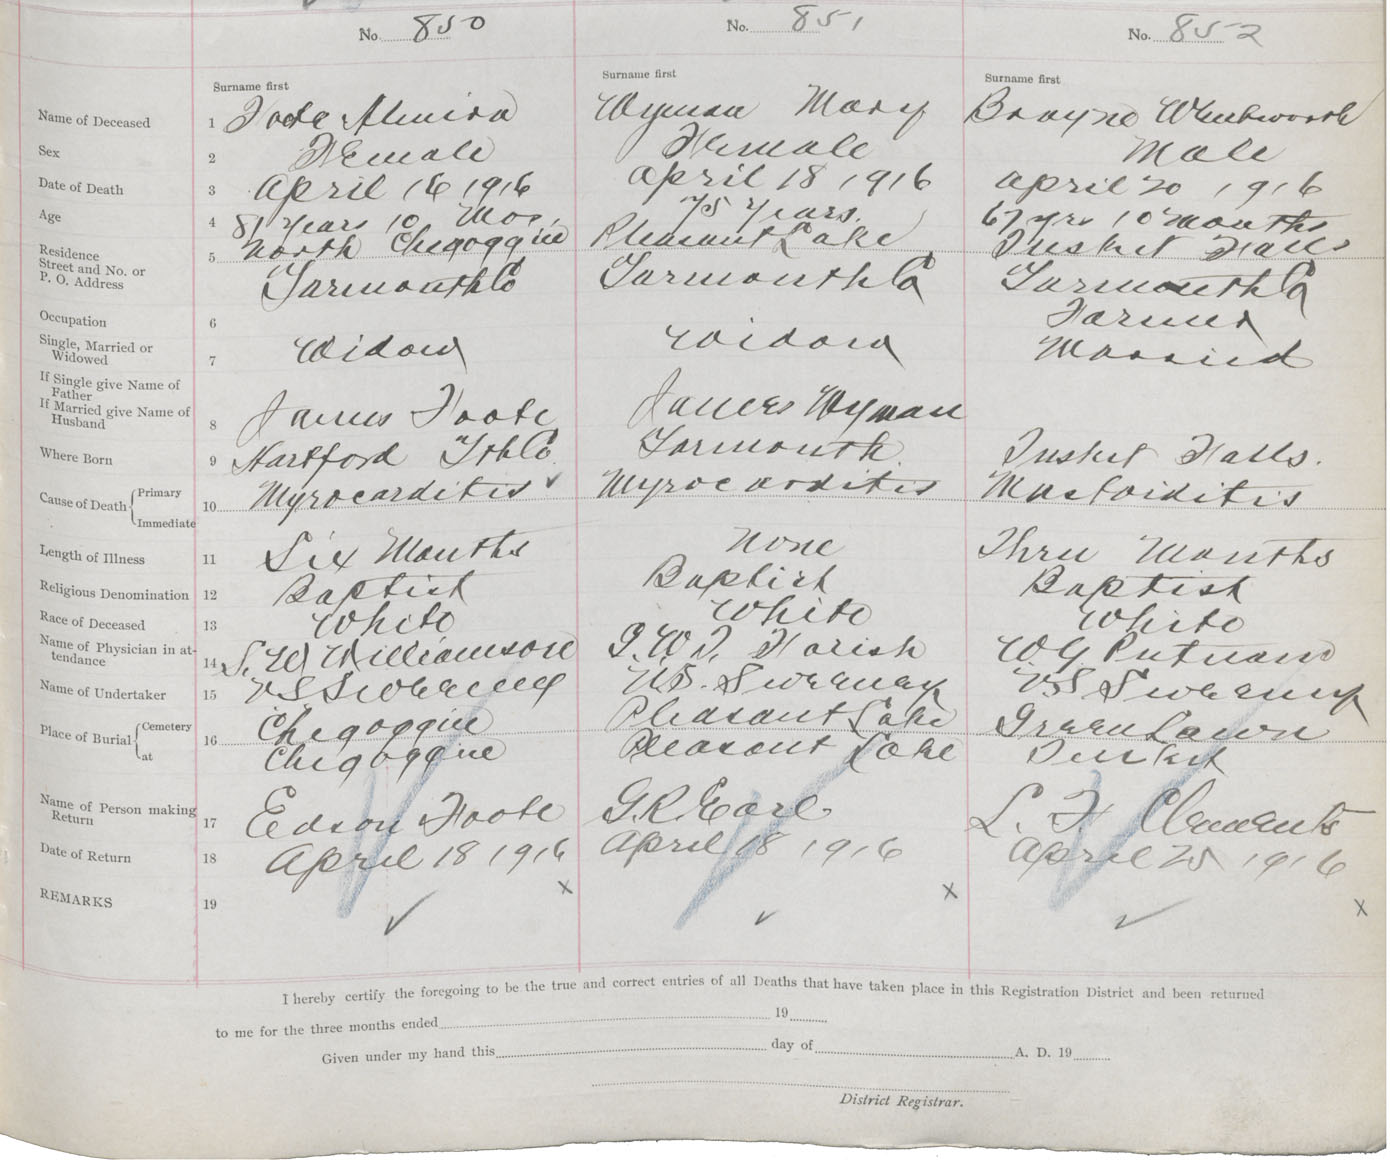 No. 850 No. 851 No. 852
Surname first Surname first Surname first
Name of Deceased 1 Foote Almira Wyman Mary Brayne Wentworth
Sex 2 Female Female Male
Date of Death 3 April 16 1916 April 18 1916 April 20 1916
Age 4 81 years 10 Mos. 75 years. 67 yrs 10 months
Residence Street and No. or P. O. Address 5 North Chegoggin Pleasant Lake Tusket Falls
Yarmouth Co Yarmouth Co Yarmouth Co
Occupation 6 Farmer
Single, Married or Widowed 7 Widow Widow Married
If Single give Name of Father
If Married give Name of Husband 8 James Foote James Wyman
Where Born 9 Hartford Yth Co Yarmouth. Tusket Falls.
Cause of Death { Primary Immediate 10 Myrocarditis Myrocarditis Mastoiditis
Length of Illness 11 Six Months None Three Months
Religious Denomination 12 Baptist Baptist Baptist
Race of Deceased 13 White White White
Name of Physician in attendance 14 S. W Williamson J. W. T. Farish W G Putnam
Name of Undertaker 15 VS Sweeney VS. Sweeney VS Sweeney
Place of Burial { Cemetery 16 Chegoggin Pleasant Lake Green Lawn
at Chegoggin Pleasant Lake Tusket
Name of Person making Return 17 Edson Foote G. R. Earl L. F Clements
Date of Return 18 April 18 1916 April 18 1916 April 25 1916
REMARKS 19 x x x
I hereby certify the foregoing to be the true and correct entries of all Deaths that have taken place in this Registration District and been returned
to me for the three months ended 19
Given under my hand this day of A. D. 19
District Registrar.